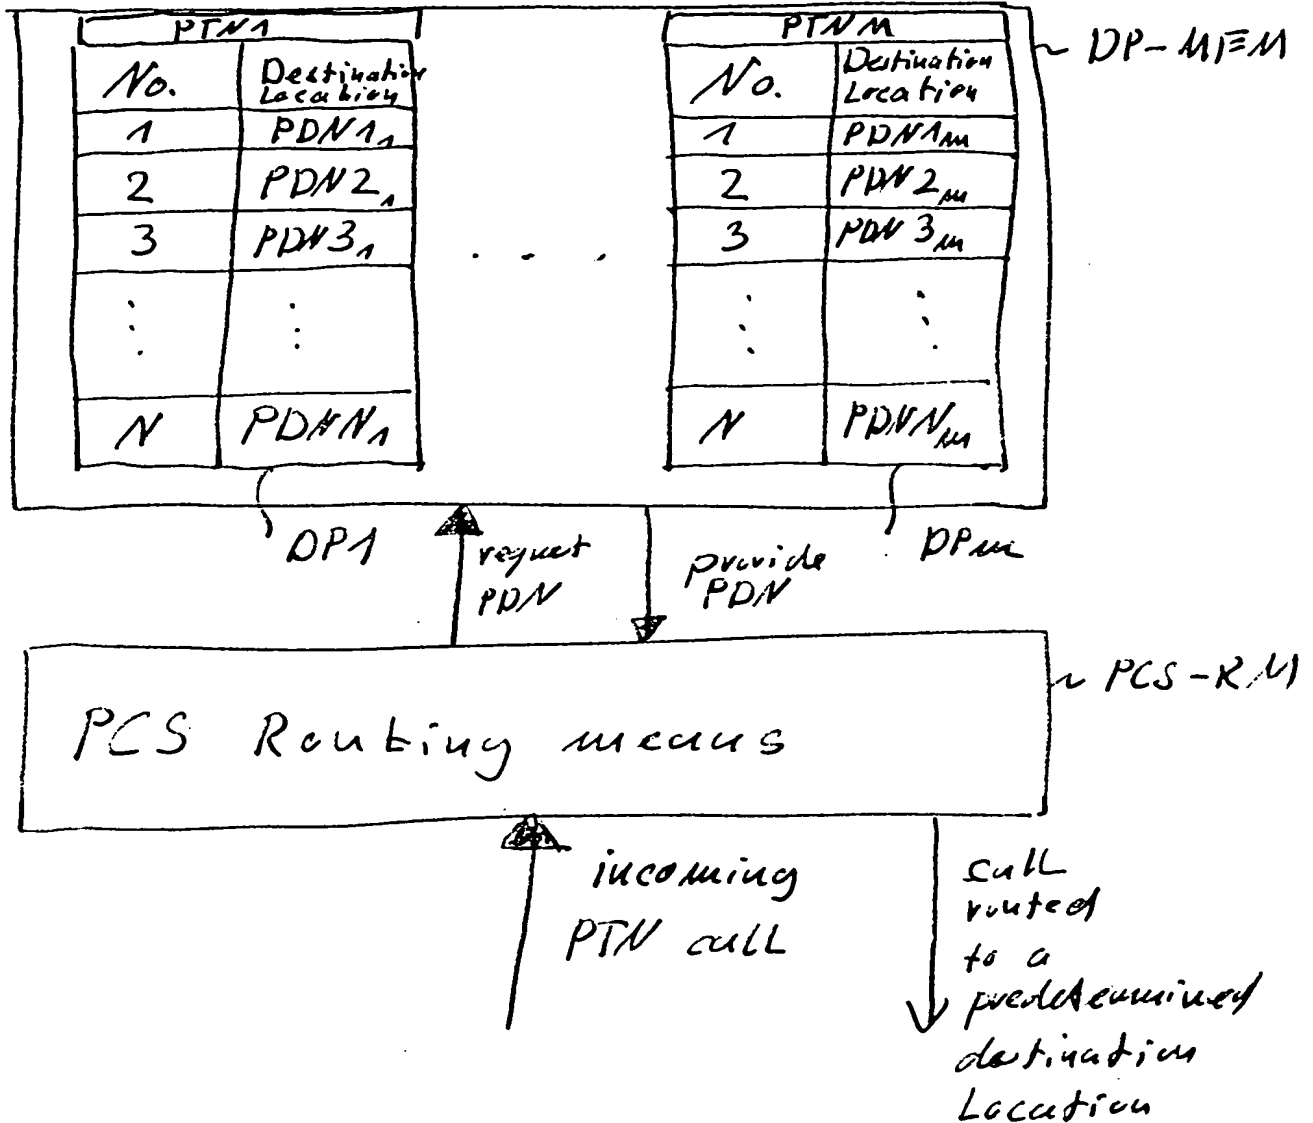 PTN1
No.
Destination
Location
1
PDN1₁
2
PDN2₁
3
PDN3₁
N
PDNN₁
. . .
PTNm
No.
Destination
Location
1
PDN1m
2
PDN2m
3
PDN3m
N
PDNNm
DP-MEM
DP1
DPm
request
PDN
provide
PDN
PCS Routing means
PCS-RM
incoming
PTN call
call
routed
to a
predetermined
destination
Location